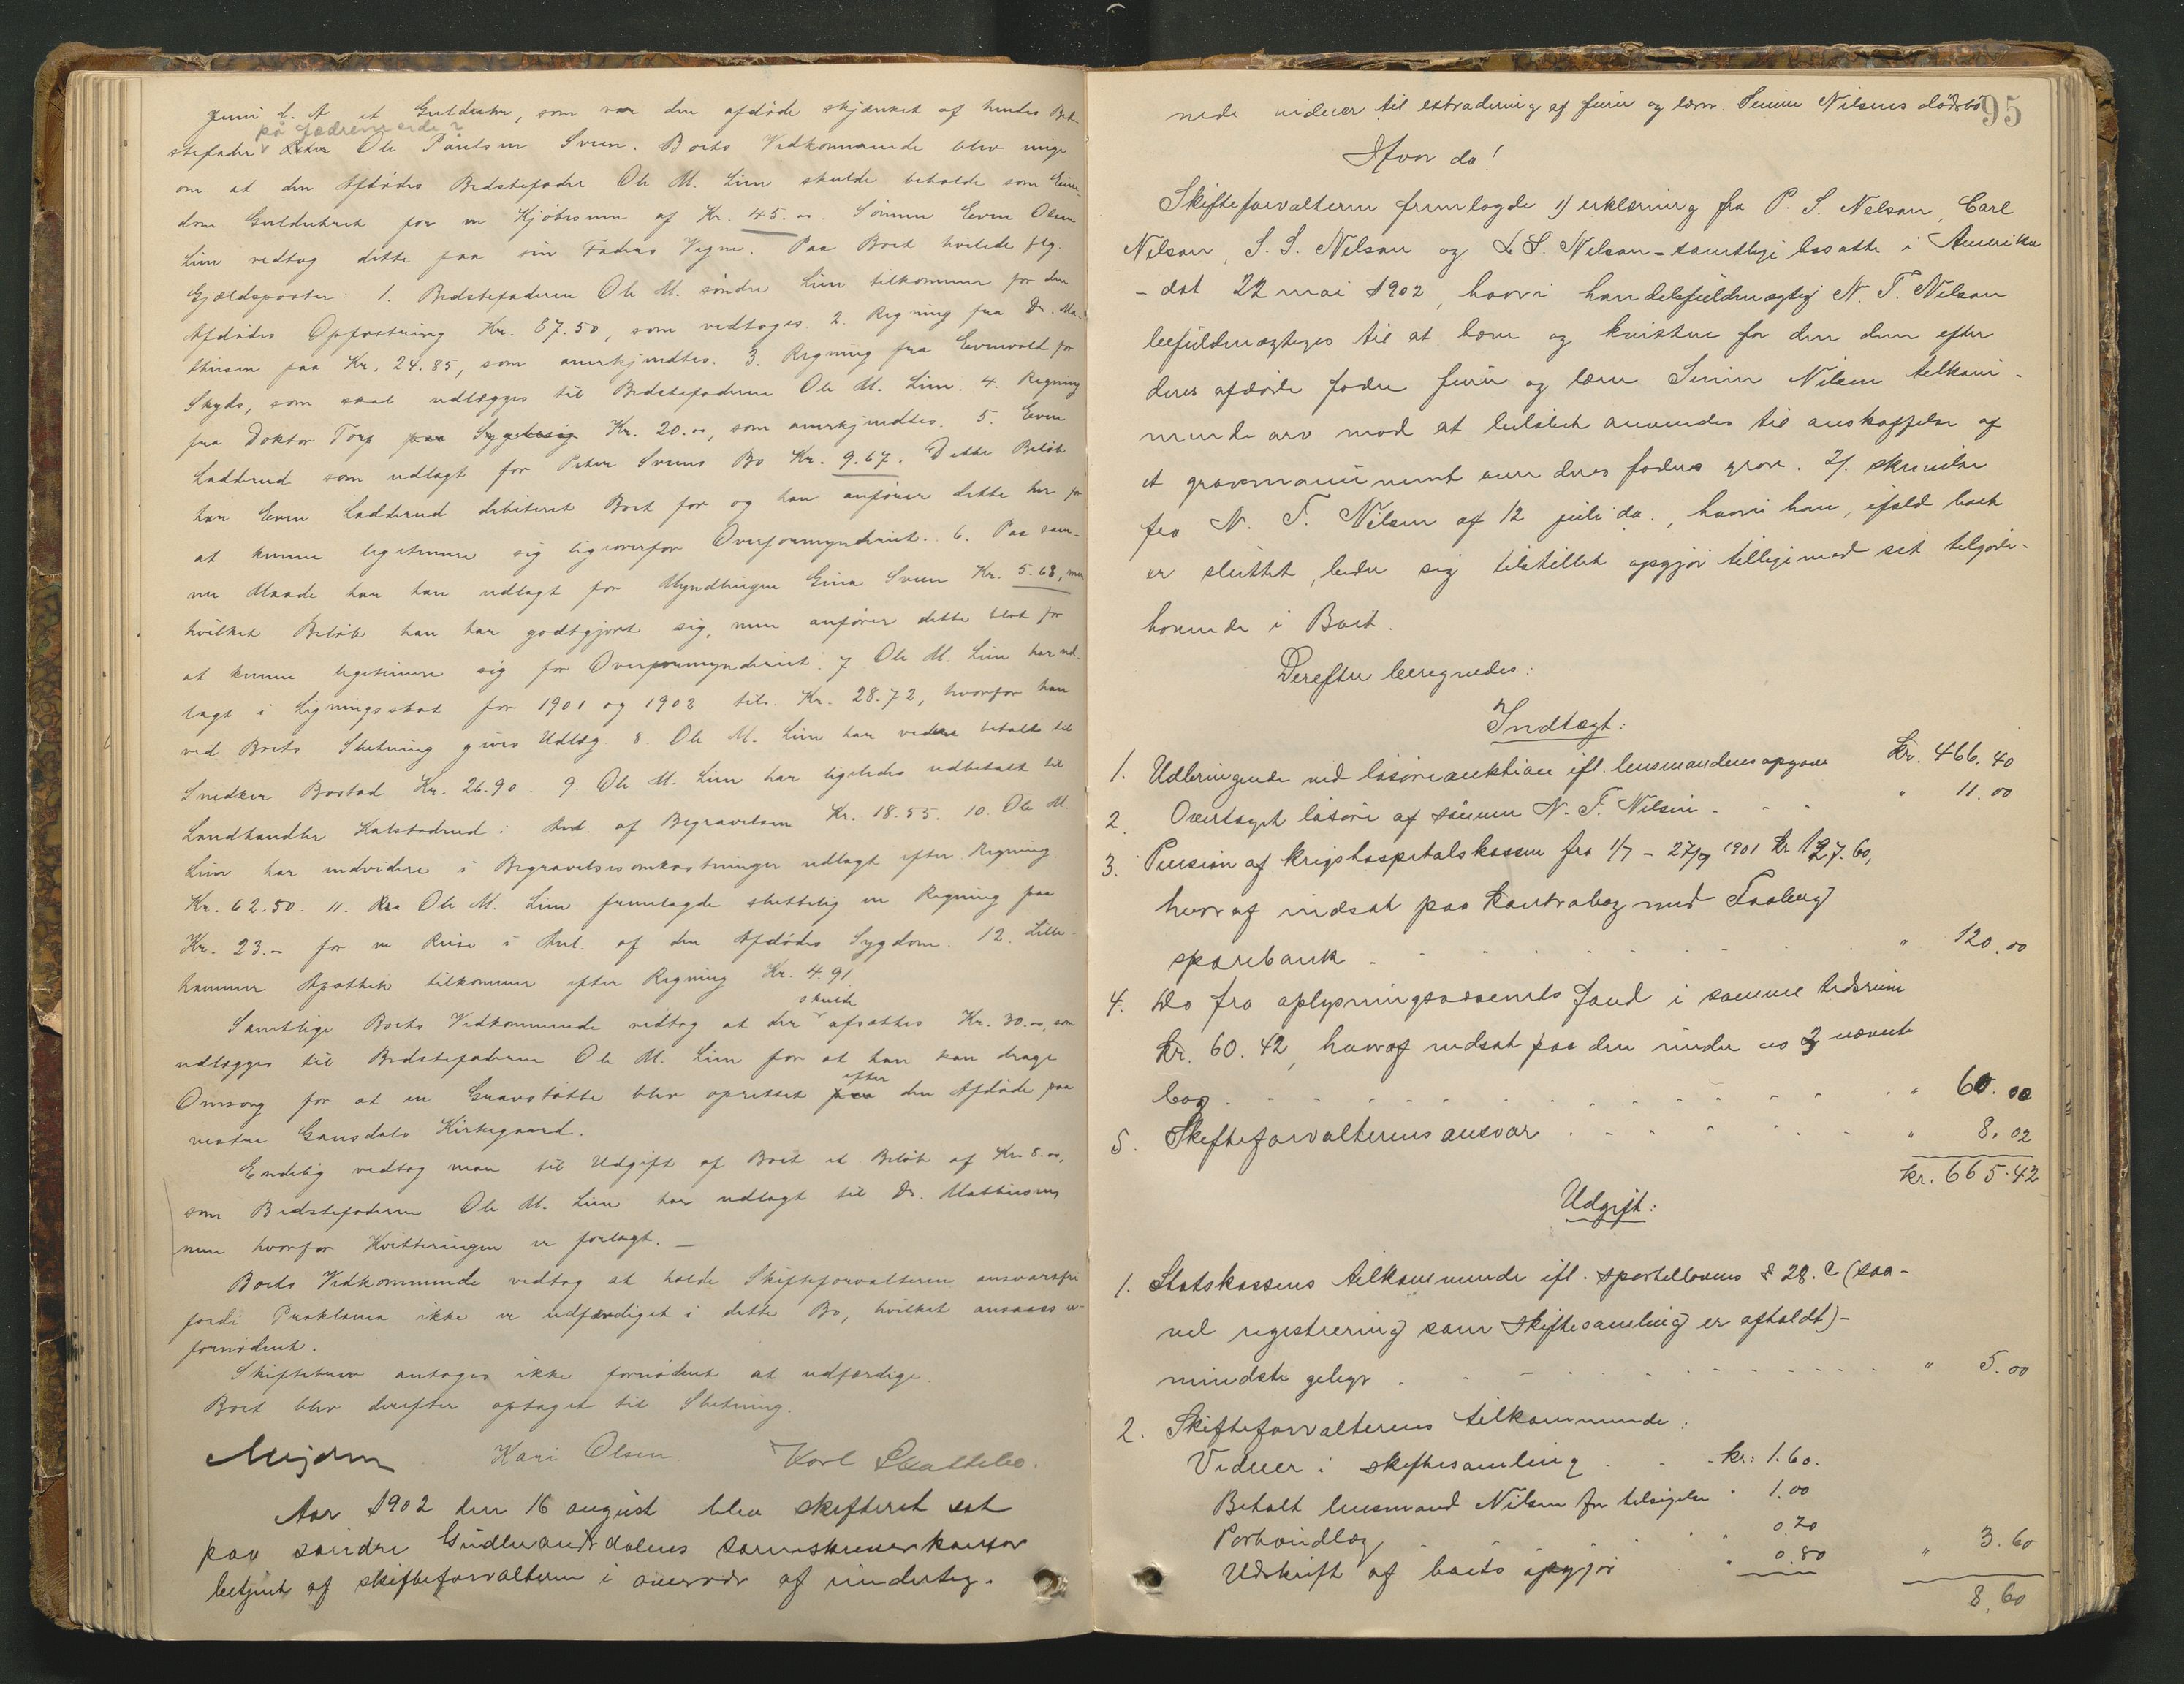 juni d. A. et Gulduhr, som var den afdøde skjænket af hendes Bed-
på fædrene side
stefader Ole Paulsen Sveen. Boets Vedkommende blev enige
om at den Afdødes Bedstefader Ole M. Lien skulde beholde som Eien-
dom Gulduhret for en Kjøbesum af Kr. 45.00. Sønnen Even Olsen
Lien vedtog dette paa sin Faders Vegne. Paa Boet hvilede flg.
Gjældsposter: 1. Bedstefaderen Ole M. søndre Lien tilkommer for den
Afdødes Opfostring Kr. 87.50, som vedtoges. 2. Regning fra Dr. Ma-
thiesen paa Kr. 24.85, som anerkjendtes. 3. Regning fra Evenvold for
Skyds, som skal udlægges til Bedstefaderen Ole M. Lien. 4. Regning
fra Doktor Torp paa Sygebesøg Kr. 20.00, som anerkjendtes. 5. Even
Ladderud som udlagt for Peter Sveens Bo Kr. 9.67. Dette Beløb
har Even Ladderud debiteret Boet for og han anfører dette her for
at kunne legitimere sig ligeoverfor Overformynderiet. 6. Paa sam-
me Maade har han udlagt for Myndlingen Gina Sveen Kr. 5.68,
hvilket Beløb han har godtgjort sig, men anfører dette blot for
at kunne legitimere sig for Overformynderiet. 7 Ole M. Lien har ud-
lagt i Ligningsskat for 1901 og 1902 tils. Kr. 28.72, hvorfor han
ved Boets Slutning gives Udlæg. 8. Ole M. Lien har videre betalt til
Snedker Bostad Kr. 26.90. 9. Ole M. Lien har ligeledes udbetalt til
Landhandler Kalstadrud i Anl. af Begravelsen Kr. 18.55. 10. Ole M.
Lien har endvidere i Begravelsesomkostninger udlagt efter Regning
Kr. 62.50. 11. Ole M. Lien fremlagde sluttelig en Regning paa
Kr. 23.- for en Reise i Anl. af den Afdødes Sygdom. 12. Lille-
hammer Apothek tilkommer efter Regning Kr. 4.91.
skulde
Samtlige Boets Vedkommende vedtog at der afsættes Kr. 30.00, som
udlægges til Bedstefaderen Ole M. Lien for at han kan drage
efter
Omsorg for at en Gravstøtte blev oprettet paa den Afdøde paa
vestre Gausdals Kirkegaard.
Endelig vedtog man til Udgift af Boet et Beløb af Kr. 8.00,
som Bedstefaderen Ole M. Lien har udlagt til Dr. Mathiesen,
men hvorfor Kvitteringen er forlagt. —
Boets Vedkommende vedtog at holde Skifteforvalteren ansvarsfri
fordi Proklama ikke er udfærdiget i dette Bo, hvilket ansaaes u-
fornødent.
Skiftebrev antoges ikke fornødent at udfærdige.
Boet blev derefter optaget til Slutning.
Mejdell Kari Olsen Karl Skattebo.
Aar 1902 den 16 august blev skifteret sat
paa søndre Gudbrandsdalens sorenskriverkontor
betjent af skifteforvalteren i overvær af underteg-
95
nede vidner til extradering af furer og læm. Simen Nilsens dødsbo
Hvor da!
Skifteforvalteren fremlagde 1) erklæring fra P. S. Nelson, Carl
Nelson, S. S. Nelson og L. S. Nelson - samtlige bosatte i Amerika
- dat 22 mai 1902, hvori handelsfuldmægtig N. T. Nilsen
befuldmægtiges til at hæve og kvittere for den dem efter
deres afdøde fader furer og læm Simen Nilsen tilkom-
mende arv mod at beløbet anvendes til anskaffelse af
et gravmonument over deres faders grav. 2). skrivelse
fra N. T. Nilsen af 12 juli da., hvori han, ifald boet
er sluttet, beder sig tilstillet opgjør tilligemed sit tilgode-
havende i Boet.
Derefter beregnedes:
Indtægt:
1. Udbringende ved løsøreauktion ifl. lensmandens opgave Kr. 466.40
2. Overtaget løsøre af sønnen N. T. Nilsen - - - " 11.00
3. Pension af krigshospitalskassen fra 1/7 - 27/9 1901 Kr 127.60,
hvoraf indsat paa kontrabog med Faaberg
sparebank - - - - - " 120.00
4. Do fra oplysningsvæsenets fond i samme tidsrum
Kr. 60.42, hvoraf indsat paa den under no 3 nævnte
bog - - - - - " 60.00
5. Skifteforvalterens ansvar - - - - " 8.02
kr. 665.42
Udgift:
1. Statskassens tilkommende ifl. sportellovens § 28. c (saa-
vel registrering som skiftesamling er afholdt)-
mindste gebyr - - - - - " 5.00
2. Skifteforvalterens tilkommende:
Vidner i skiftesamling - - kr: 1.60.
Betalt lensmand Nilsen for tilsigelse " 1.00
Portoudlæg " 0.20
Udskrift af boets opgjør " 0.80 " 3.60
8.60